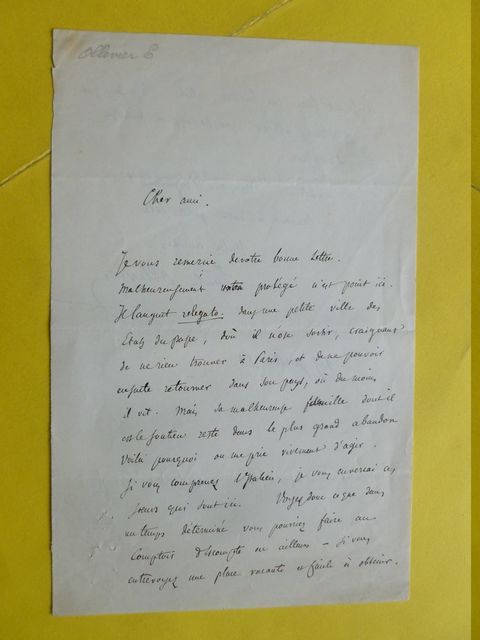 Ollivier E
Cher ami.
Je vous remercie de votre bonne lettre.
Malheureusement votre protégé n'est point ici.
Il languit relegato dans une petite ville des
Etats du pape, d'où il n'ose sortir, craignant
de ne rien trouver à Paris, et de ne pouvoir
ensuite retourner dans son pays, où du moins
il vit. Mais sa malheureuse famille dont il
est le soutien reste dans le plus grand abandon
Voilà pourquoi on me prie vivement d'agir.
Si vous comprenez l'Italien, je vous enverrai ces
sœurs qui sont ici. Voyez donc ce que dans
un temps déterminé vous pourriez faire au
Comptoir d'escompte ou ailleurs - si vous
entrevoyez une place vacante et facile à obtenir.